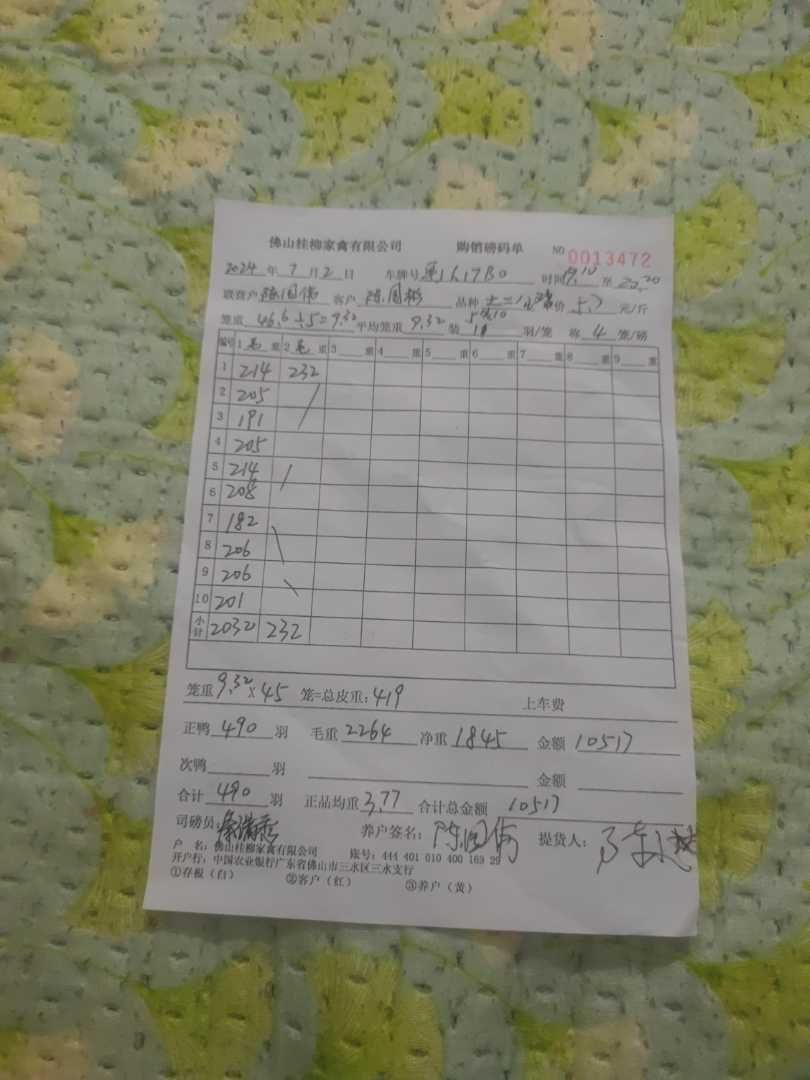 佛山桂柳家禽有限公司 购销磅码单 NO 0013472
2024年7月2日 车牌号 时间19.10至22.20
联营户 陈国伟 客户 陈国彬 品种 价 5.7 元/斤
笼重 46.6÷5=9.32 平均笼重 9.32 装 羽/笼 称 4 笼/磅
编号 1 毛 重 2 毛 重 3 重 4 重 5 重 6 重 7 重 8 重 9 重
1 214 232
2 205
3 191
4 205
5 214
6 208
7 182
8 206
9 206
10 201
小计 2032 232
笼重 9.32×45 笼=总皮重:419 上车费
正鸭 490 羽 毛重 2264 净重 1845 金额 10517
次鸭 羽 金额
合计 490 羽 正品均重 3.77 合计总金额 10517
司磅员: 养户签名: 陈国伟 提货人:
户 名:佛山桂柳家禽有限公司 账号:444 401 010 400 169 29
开户行:中国农业银行广东省佛山市三水区三水支行
①存根(白) ②客户(红) ③养户(黄)